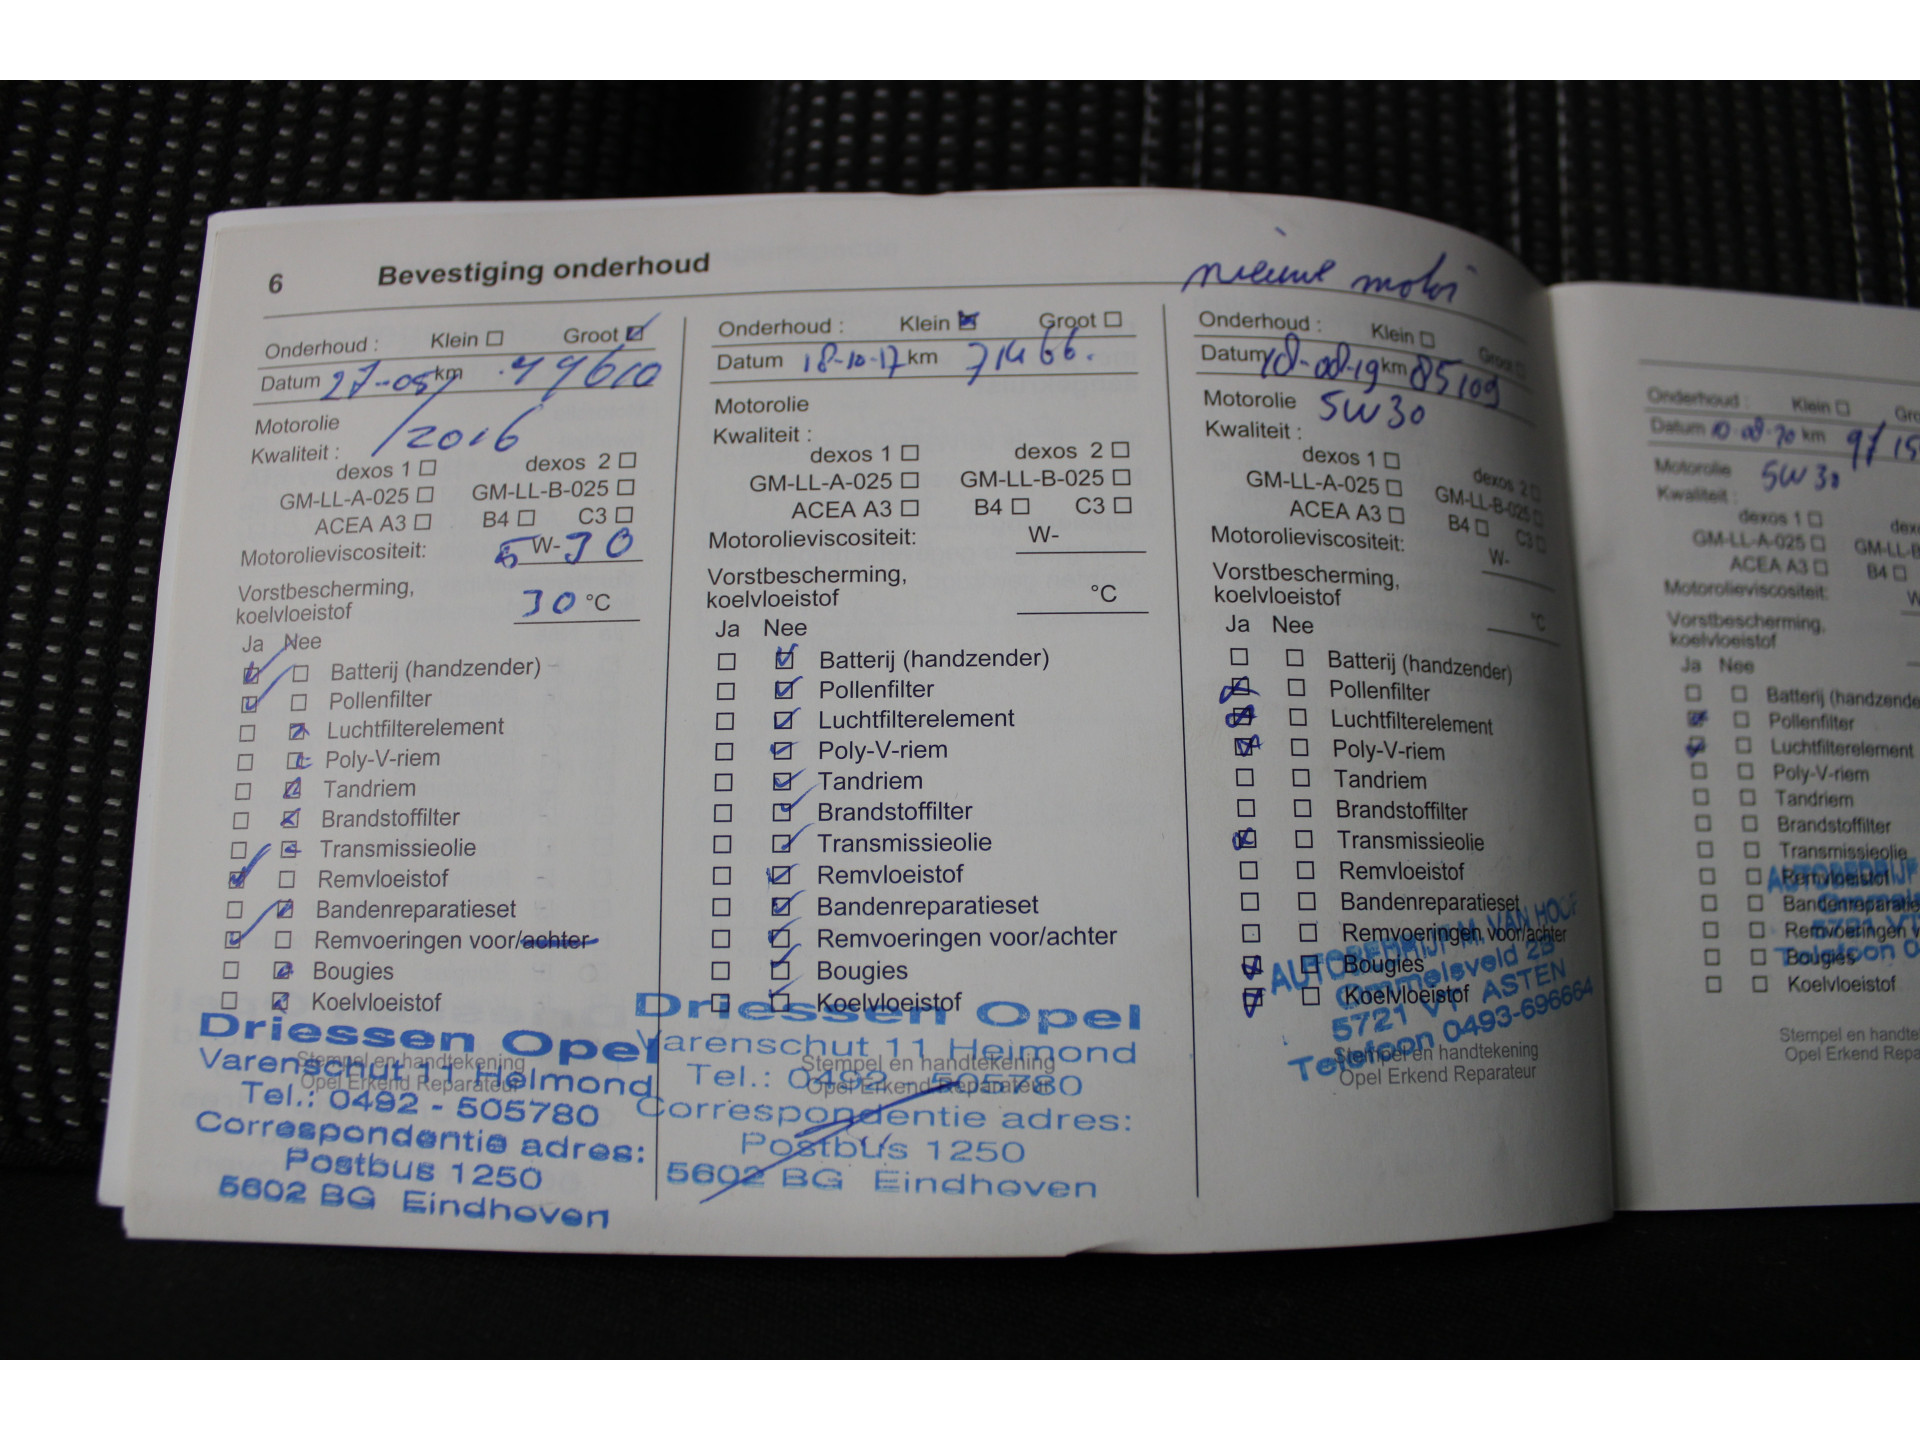 6 Bevestiging onderhoud
nieuwe motor
Onderhoud : Klein Groot
Datum 27-05/ km
/2016
Motorolie
Kwaliteit :
dexos 1 dexos 2
GM-LL-A-025 GM-LL-B-025
ACEA A3 B4 C3
Motorolieviscositeit: 5 W- 30
Vorstbescherming,
koelvloeistof 30 °C
Ja Nee
Batterij (handzender)
Pollenfilter
Luchtfilterelement
Poly-V-riem
Tandriem
Brandstoffilter
Transmissieolie
Remvloeistof
Bandenreparatieset
Remvoeringen voor/achter
Bougies
Koelvloeistof
Stempel en handtekening
Opel Erkend Reparateur
Driessen Opel
Varenschut 11 Helmond
Tel.: 0492 - 505780
Correspondentie adres:
Postbus 1250
5602 BG Eindhoven
Onderhoud : Klein Groot
Datum 18-10-17 km 71466.
Motorolie
Kwaliteit :
dexos 1 dexos 2
GM-LL-A-025 GM-LL-B-025
ACEA A3 B4 C3
Motorolieviscositeit: W-
Vorstbescherming,
koelvloeistof °C
Ja Nee
Batterij (handzender)
Pollenfilter
Luchtfilterelement
Poly-V-riem
Tandriem
Brandstoffilter
Transmissieolie
Remvloeistof
Bandenreparatieset
Remvoeringen voor/achter
Bougies
Koelvloeistof
Stempel en handtekening
Opel Erkend Reparateur
Driessen Opel
Varenschut 11 Helmond
Tel.: 0492 - 505780
Correspondentie adres:
Postbus 1250
5602 BG Eindhoven
Onderhoud : Klein Groot
Datum 10-08-19 km 85109
Motorolie 5W30
Kwaliteit :
dexos 1 dexos 2
GM-LL-A-025 GM-LL-B-025
ACEA A3 B4 C3
Motorolieviscositeit: W-
Vorstbescherming,
koelvloeistof °C
Ja Nee
Batterij (handzender)
Pollenfilter
Luchtfilterelement
Poly-V-riem
Tandriem
Brandstoffilter
Transmissieolie
Remvloeistof
Bandenreparatieset
Remvoeringen voor/achter
Bougies
Koelvloeistof
Stempel en handtekening
Opel Erkend Reparateur
AUTOBEDRIJF M. VAN HOOF
Ommelsveld 2B
5721 VV ASTEN
Telefoon 0493-696664
Onderhoud : Klein Gro
Datum 10-08-20 km 9115
Motorolie 5W30
Kwaliteit :
dexos 1 dex
GM-LL-A-025 GM-LL-B
ACEA A3 B4
Motorolieviscositeit: W
Vorstbescherming,
koelvloeistof
Ja Nee
Batterij (handzende
Pollenfilter
Luchtfilterelement
Poly-V-riem
Tandriem
Brandstoffilter
Transmissieolie
Remvloeistof
Bandenreparatie
Remvoeringen v
Bougies
Koelvloeistof
Stempel en handte
Opel Erkend Repa
AUTOBEDRIJF
Ommels
5721 V
Telefoon 0